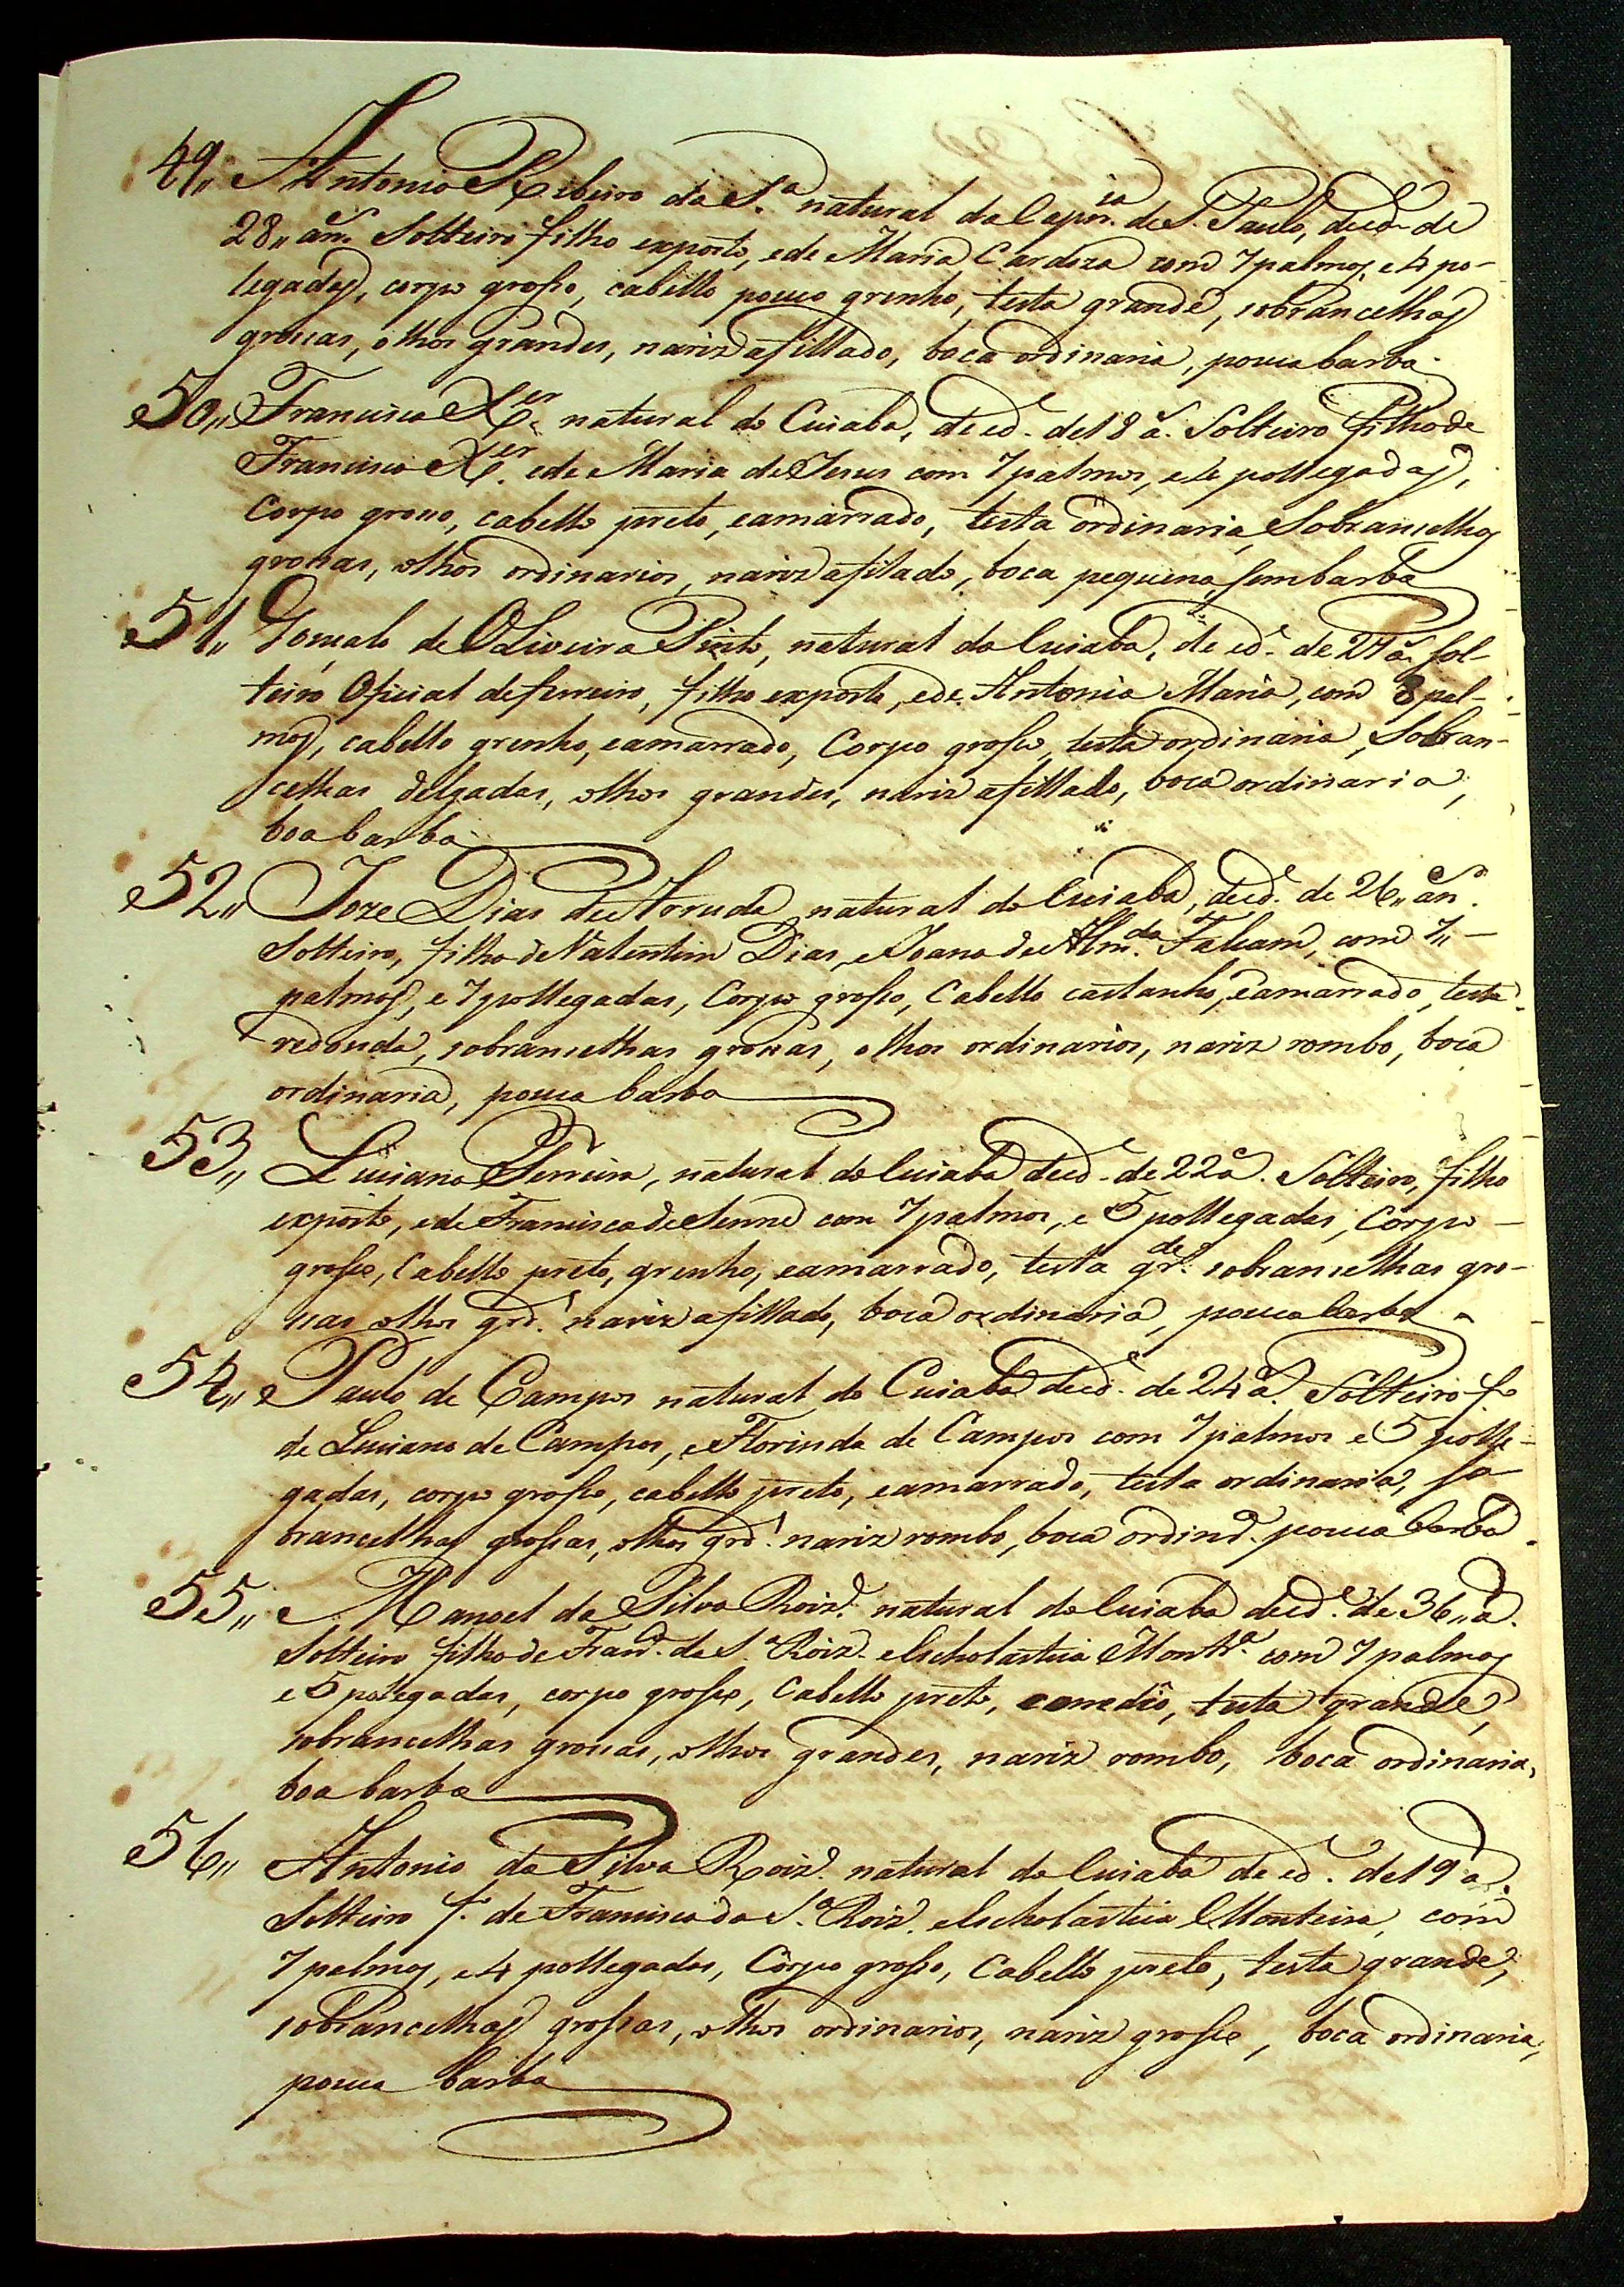 49,, Antonio Ribeiro da S.ª natural da Capn.ia de S. Paulo, de ed.e de
28,, an.s Solteiro filho exposto, e de Maria Cardoza com 7 palmos, e 4 po-
legadas, corpo grosso, cabello pouco grenho, testa grande, sobrancelhas
grossas, olhos grandes, nariz afillado, boca ordinaria, pouca barba
50,, Francisco X.er natural do Cuiabá, de ed.e de 18 a. Solteiro filho de
Francisco X.er e de Maria de Jesus com 7 palmos, e 6 pollegadas,
Corpo grosso, cabello preto, e amarrado, testa ordinaria, Sobrancelhas
grossas, olhos ordinarios, nariz afilado, boca pequena, sem barba
51,, Gonçalo de OLiveira Pinto, natural do Cuiabá, de ed.e de 27 a. Sol-
teiro Oficial de ferreiro, filho exposto, e de Antonia Maria, com 8 pal-
mos, cabello grenho, e amarrado, Corpo grosso, testa ordinaria, Sobran-
celhas delgadas, olhos grandes, nariz afillado, boca ordinaria,
boa barba
52,, Joze Dias de Arruda natural do Cuiabá, de ed.e de 26,, an.s
Solteiro, filho de Valentim Dias, e Joana de Alm.da Falcam, com 7,,
palmos, e 7 pollegadas, Corpo grosso, Cabello castanho, e amarrado, testa
redonda, sobrancelhas grossas, olhos ordinarios, nariz rombo, boca
ordinaria, pouca barba
53,, Luciano Ferreira, natural do Cuiabá de ed.e de 22 a. Solteiro, filho
exposto, e de Francisca de Senne com 7 palmos, e 5 pollegadas, Corpo
grosso, Cabello preto, grenho, e amarrado, testa gr.de sobrancelhas gro-
ssas olhos grd.s nariz afillado, boca ordinaria, pouca barba
54,, Paulo de Campos natural do Cuiabá de ed.e de 24 a. Solteiro f.o
de Luciano de Campos, e Florinda de Campos com 7 palmos e 5 polle-
gadas, corpo grosso, cabello preto, e amarrado, testa ordinaria, so-
brancelhas grossas, olhos grd.s nariz rombo, boca ordin.a pouca barba
55,, Manoel da Silva Roiz. natural do Cuiabá de ed.e de 36,, a.
Solteiro filho de Fran.co da S.ª Roiz. e Escholastica Mont.ª com 7 palmos
e 5 polegadas, corpo grosso, Cabello preto, testa grande,
sobrancelhas grossas, olhos grandes, nariz rombo, boca ordinaria,
boa barba
56,, Antonio da Silva Roiz. natural do Cuiabá de ed.e de 19 a.
Solteiro f.o de Francisco da S.ª Roiz. e Escholastica Monteira, com
7 palmos, e 4 pollegadas, Corpo grosso, Cabello preto, testa grande,
sobrancelhas grossas, olhos ordinarios, nariz grosso, boca ordinaria,
pouca barba